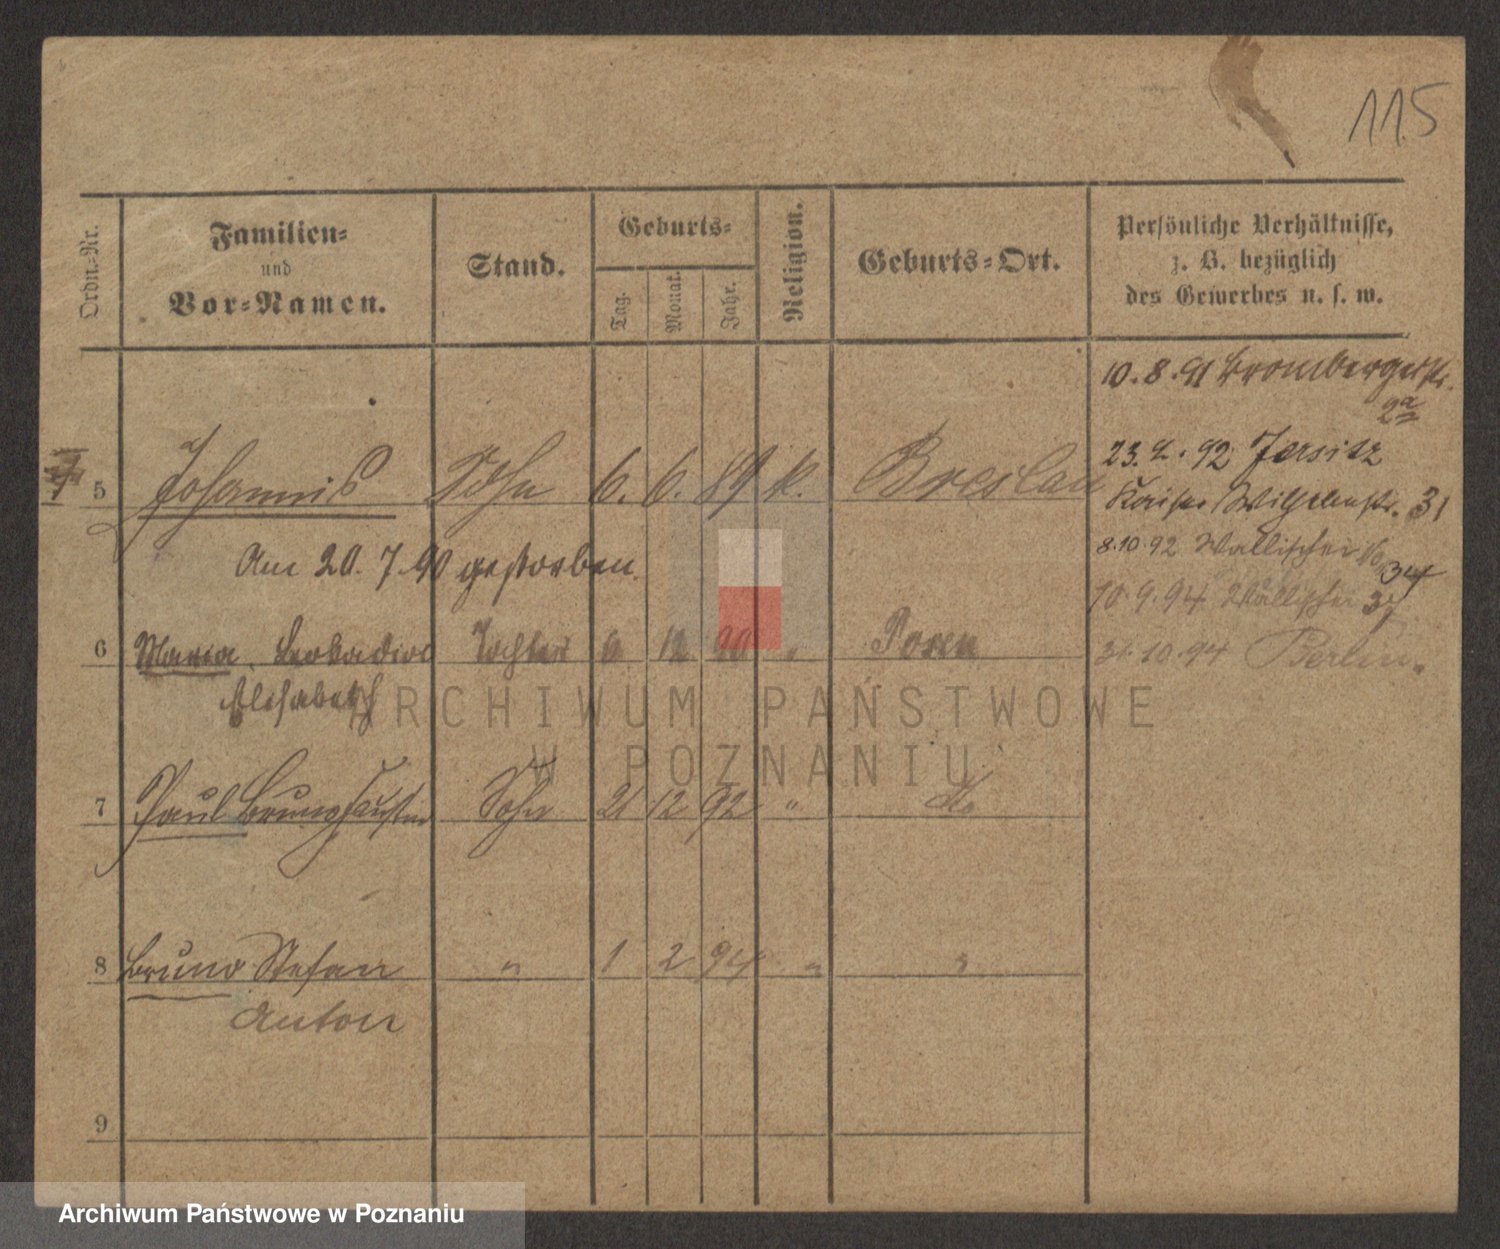 115
Ordn.-Nr.
Familien-
und
Vor-Namen.
Stand.
Geburts-
Tag.
Monat.
Jahr.
Religion.
Geburts-Ort.
Persönliche Verhältnisse,
z. B. bezüglich
des Gewerbes u. s. w.
10. 8. 91 Brombergerstr.
2a
5 Johannis Sohn 6. 6. 89 k. Breslau
23. 2. 92 Jersitz
Kaiser Wilhelmstr. 31
Am 20. 7. 90 gestorben.
8.10.92 Wallischei 34
10. 9. 94 Wallischei
6 Maria Leokadia Tochter 6 12 90 " Posen
Elisabeth
31. 10. 94 Berlin.
ARCHIWUM PAŃSTWOWE
W POZNANIU
7 Paul Bruno Sohn 21 12 92 " do
8 Bruno Stefan " 1 2 94 " "
Anton
9
Archiwum Państwowe w Poznaniu